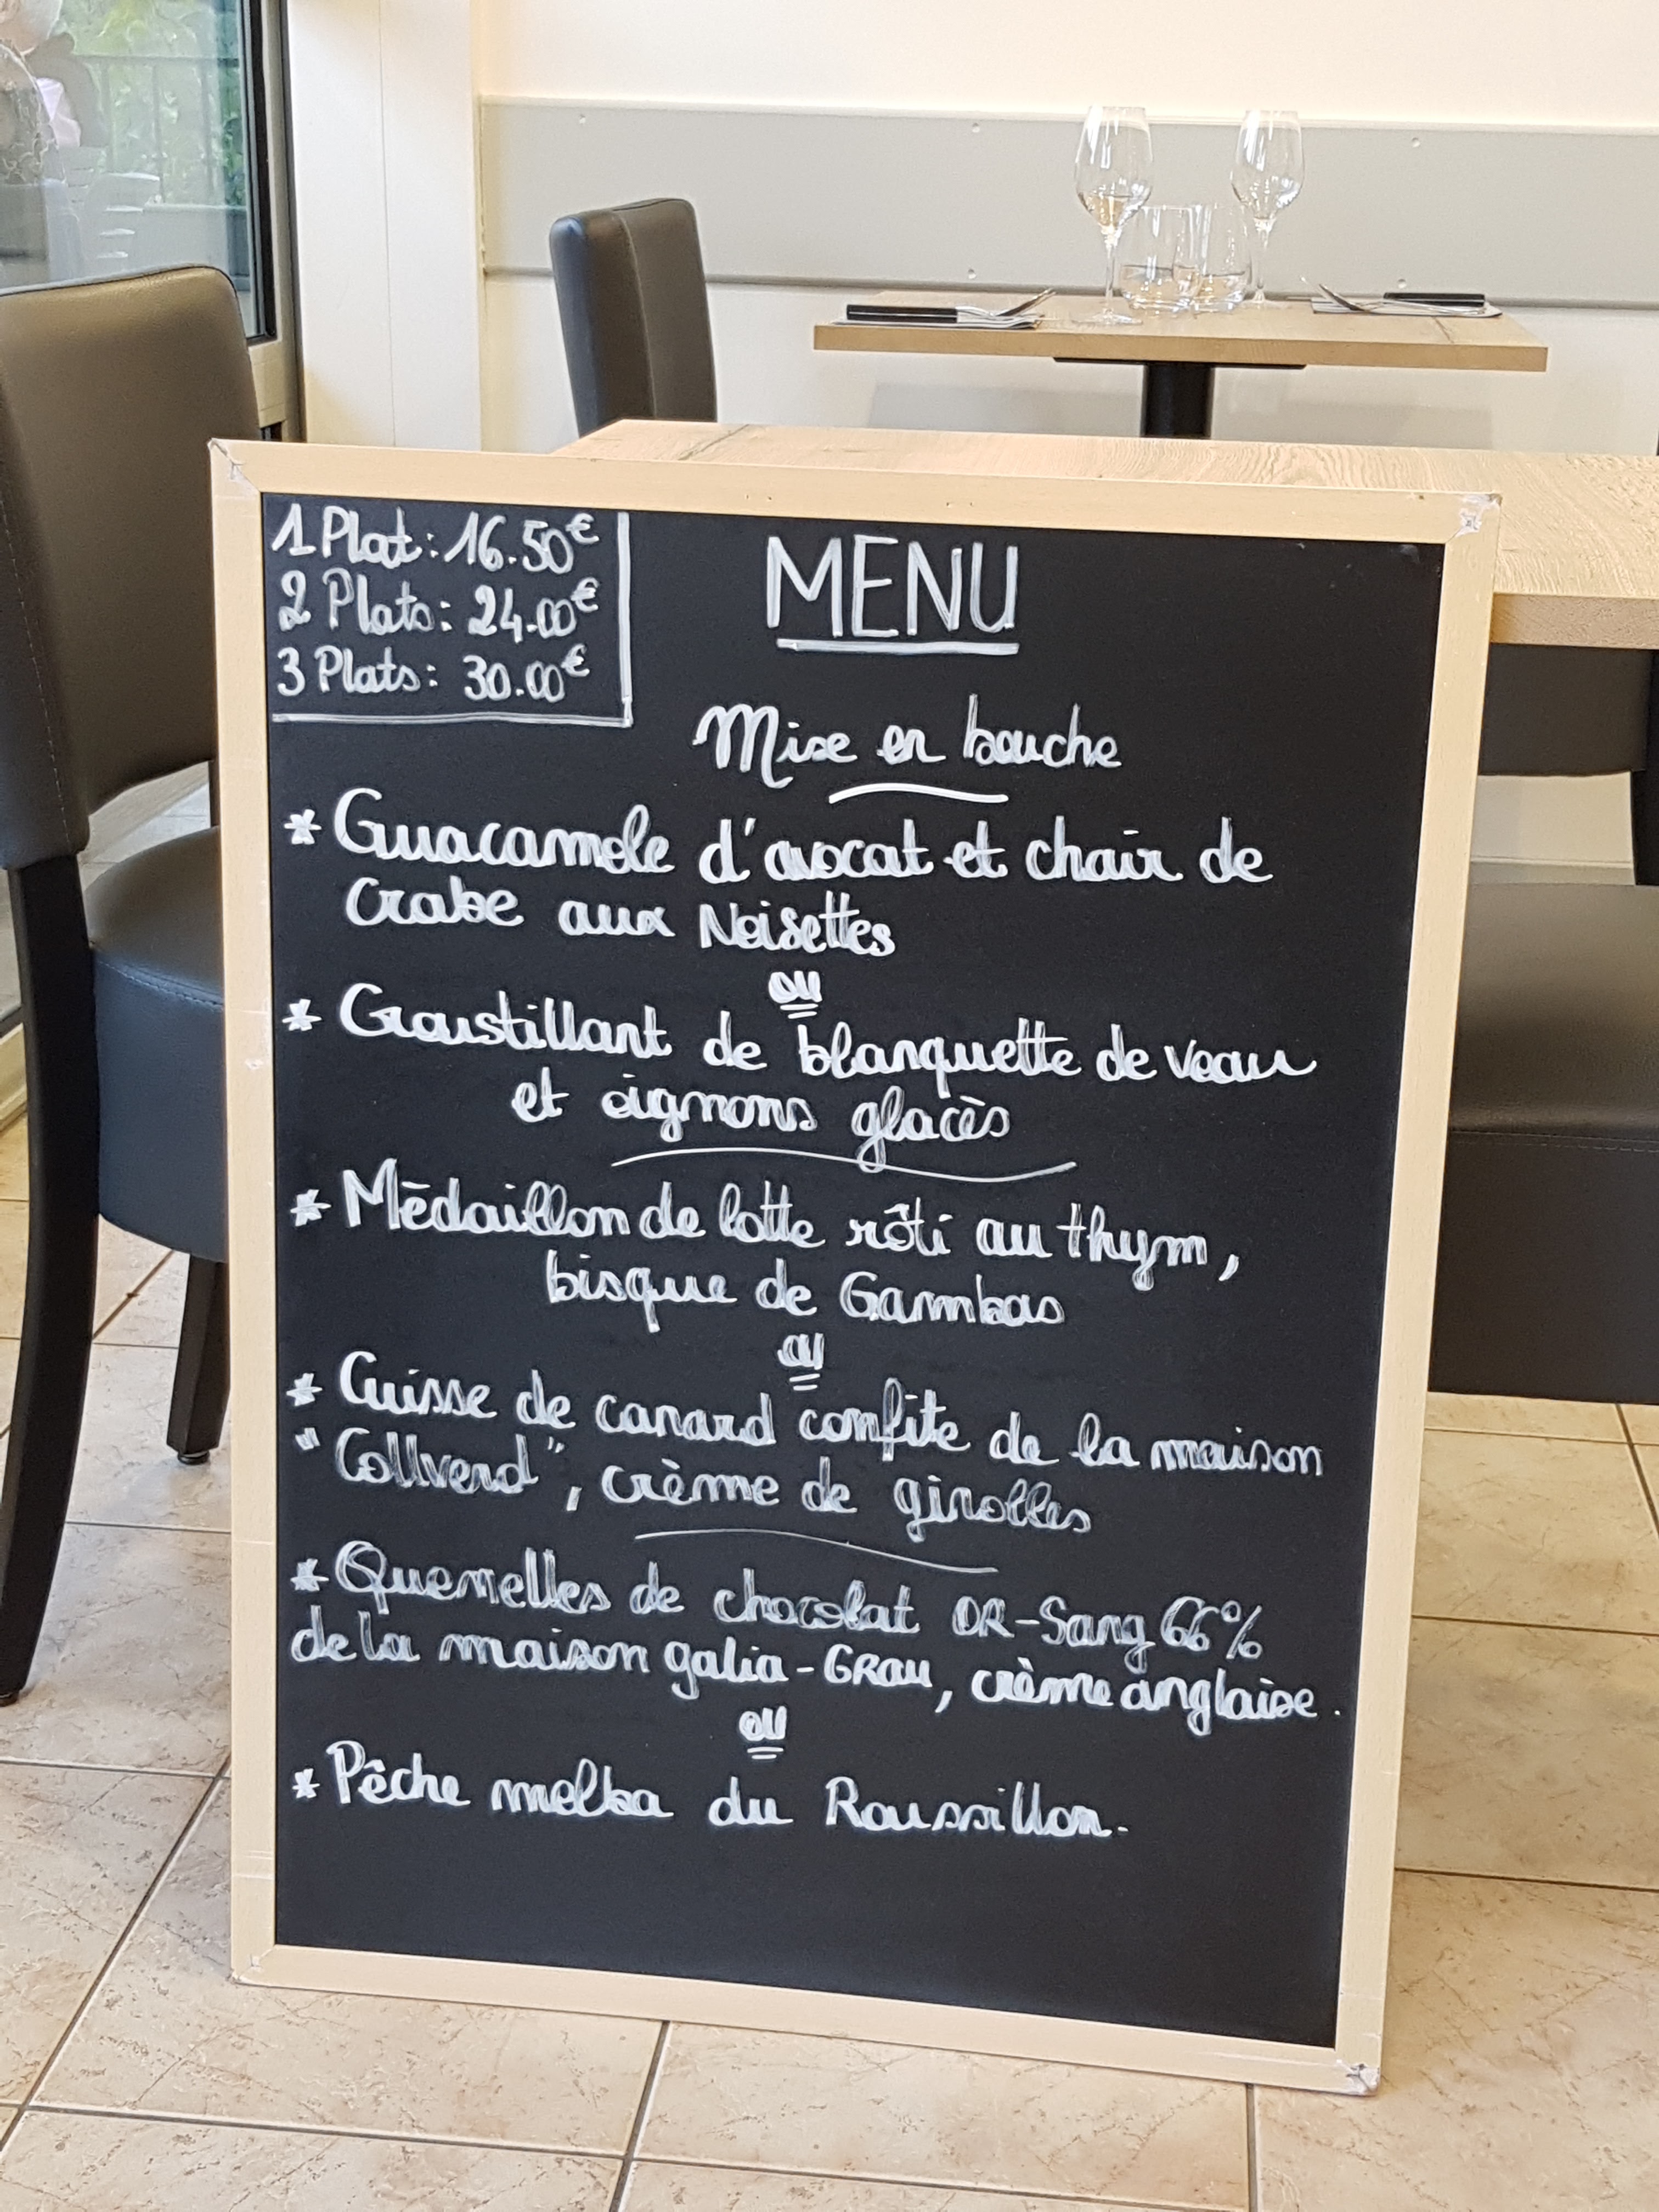 1 Plat : 16.50€
2 Plats : 24.00€
3 Plats : 30.00€
MENU
Mise en bouche
* Guacamole d'avocat et chair de
Crabe aux Noisettes
ou
* Croustillant de blanquette de veau
et oignons glacès
* Médaillon de lotte rôti au thym,
bisque de Gambas
ou
* Cuisse de canard confite de la maison
"Collverd", crème de girolles
* Quenelles de chocolat OR-Sang 66%
de la maison galia-GRau, crème anglaise.
ou
* Pêche melba du Roussillon.